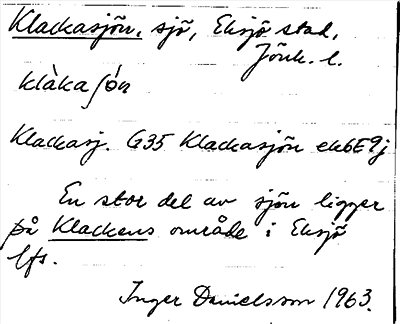 Klackasjön, sjö, Eksjö stad,
Jönk. l.
klàkaʃón
Klackasj. G35 Klackasjön ek6E9j
En stor del av sjön ligger
på Klackens område i Eksjö
lfs.
Inger Danielsson 1963.